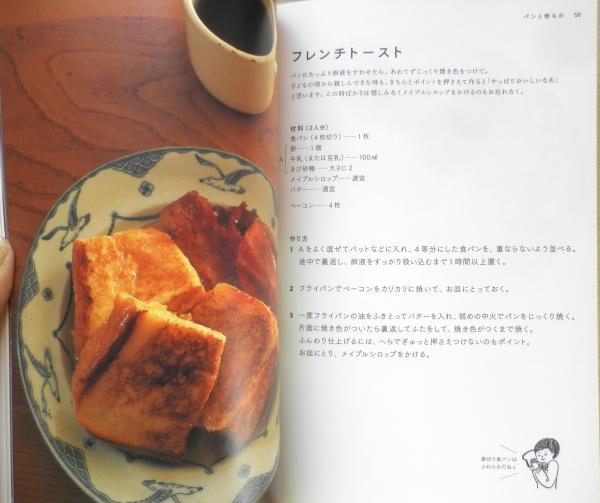 パンと粉もの 56
フレンチトースト
パンにたっぷり卵液をすわせたら、あわてずじっくり焼き色をつけて。
子どもの頃から親しんできた味も、きちんとポイントを押さえて作ると「やっぱりおいしいなあ」
と思います。この時ばかりは惜しみなくメイプルシロップをかけるのもお忘れなく。
材料（2人分）
食パン（4枚切り）……1枚
卵……1個
A 牛乳（または豆乳）……100㎖
きび砂糖……大さじ2
メイプルシロップ……適宜
バター……適宜
ベーコン……4枚
作り方
1 Aをよく混ぜてバットなどに入れ、4等分にした食パンを、重ならないよう並べる。
途中で裏返し、卵液をすっかり吸い込むまで1時間以上置く。
2 フライパンでベーコンをカリカリに焼いて、お皿にとっておく。
3 一度フライパンの油をふきとってバターを入れ、弱めの中火でパンをじっくり焼く。
片面に焼き色がついたら裏返してふたをして、焼き色がつくまで焼く。
ふんわり仕上げるには、へらでぎゅっと押さえつけないのもポイント。
お皿にとり、メイプルシロップをかける。
厚切り食パンは
ふわふわだねぇ